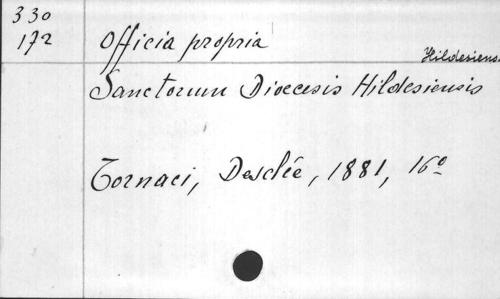 330
172 Officia propria
Hildesiens.
Sanctorum Dioecesis Hildesiensis
Tornaci, Desclée, 1881, 16º